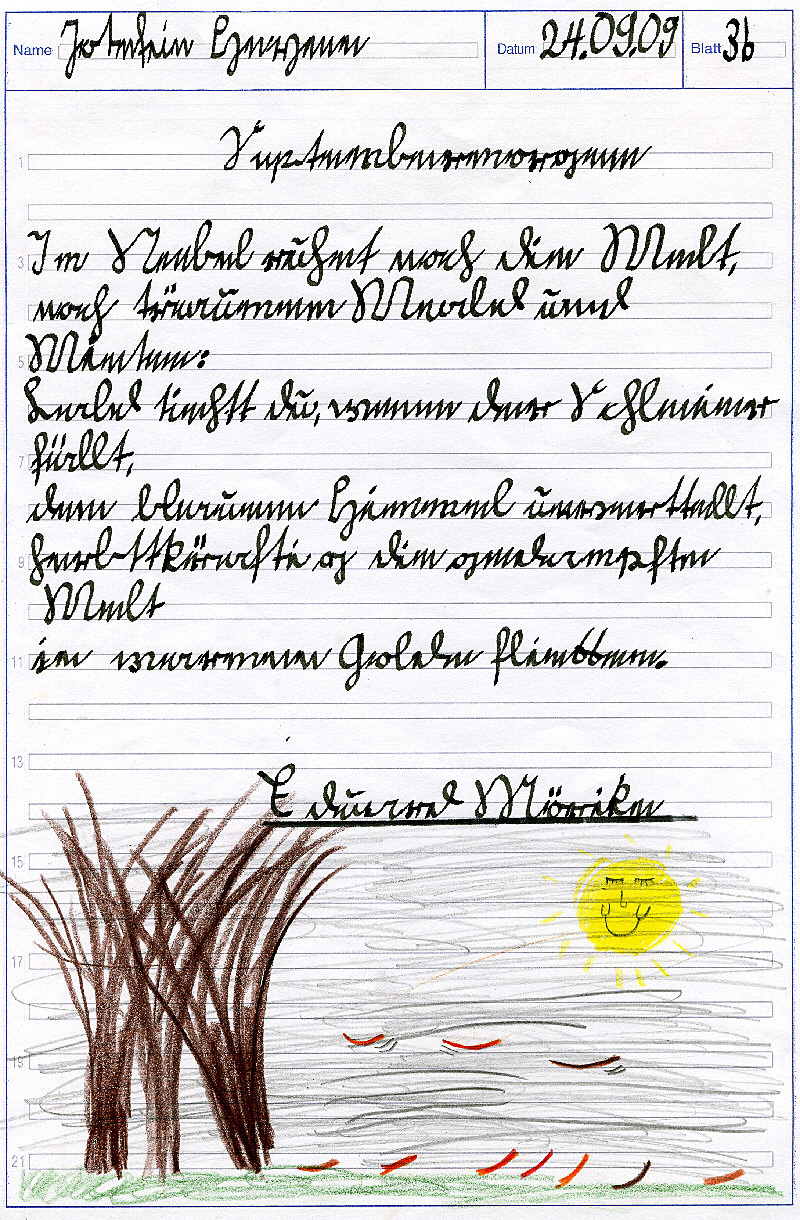 Name Josefin Datum 24.09.09 Blatt 3b
1 Septembermorgen
3 Im Nebel ruhet noch die Welt,
noch träumen Wald und
5 Wiesen:
Bald siehst du, wenn der Schleier
7 fällt,
den blauen Himmel unverstellt,
9 herbstkräftig die gedämpfte
Welt
11 in warmem Golde fliessen.
13
Eduard Mörike
15
17
19
21